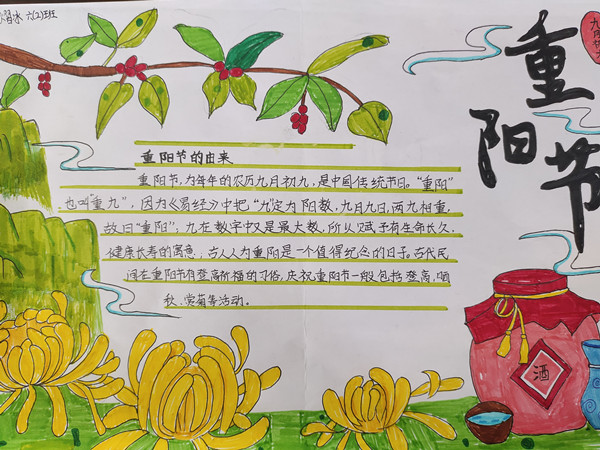 习水 六(2)班
九月初九
重阳节
重阳节的由来
重阳节,为每年的农历九月初九,是中国传统节日。“重阳”
也叫“重九”,因为《易经》中把“九”定为阳数,九月九日,两九相重,
故曰“重阳”,九在数字中又是最大数,所以赋予有生命长久、
健康长寿的寓意,古人认为重阳是一个值得纪念的日子。古代民
间在重阳节有登高祈福的习俗,庆祝重阳节一般包括登高,晒
秋、赏菊等活动。
酒